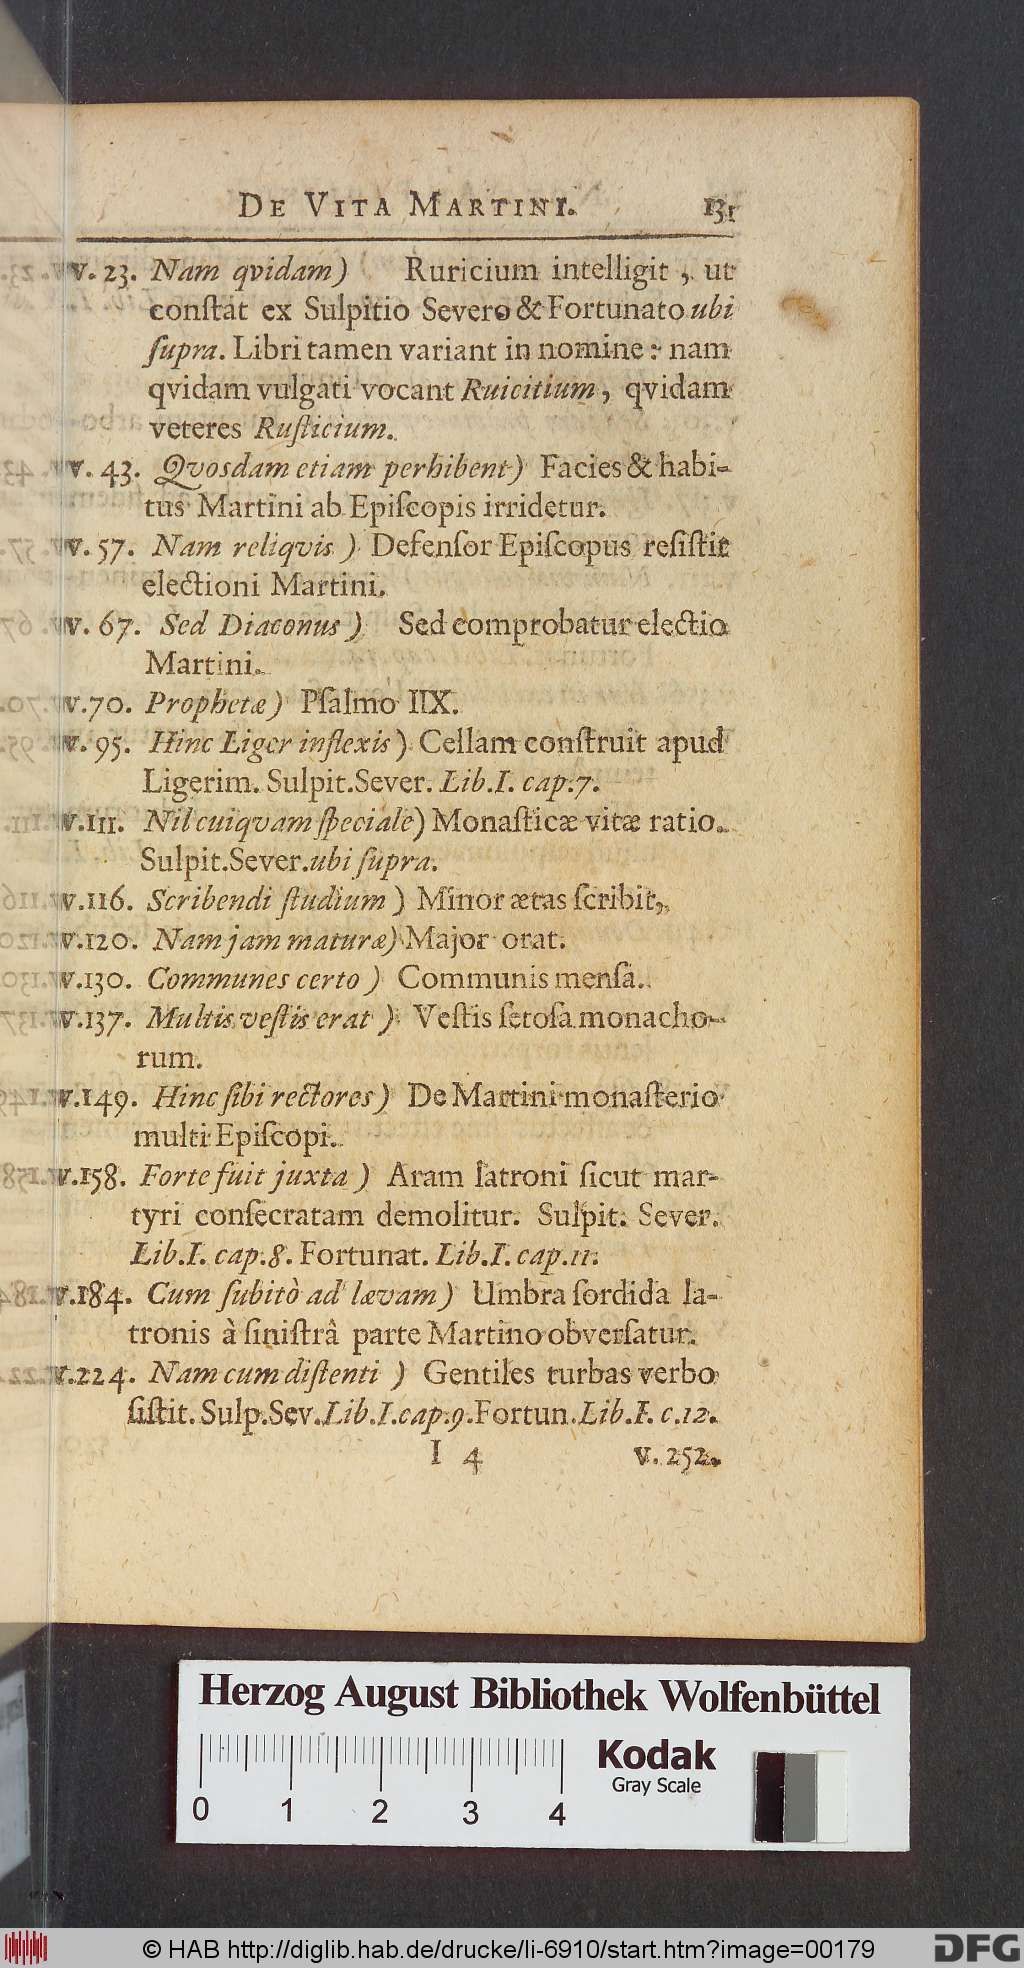 DE VITA MARTINI. 131
V. 23. Nam qvidam) Ruricium intelligit, ut
conſtat ex Sulpitio Severo & Fortunato ubi
ſupra. Libri tamen variant in nomine: nam
qvidam vulgati vocant Ruicitium, qvidam
veteres Ruſticium.
V. 43. Qvosdam etiam perhibent) Facies & habi-
tus Martini ab Epiſcopis irridetur.
V. 57. Nam reliqvis) Defenſor Epiſcopus reſiſtit
electioni Martini.
V. 67. Sed Diaconus) Sed comprobatur electio
Martini.
V. 70. Prophetæ) Pſalmo IIX.
V. 95. Hinc Liger inflexis) Cellam conſtruit apud
Ligerim. Sulpit. Sever. Lib. I. cap. 7.
V. 111. Nil cuiqvam ſpeciale) Monaſticæ vitæ ratio.
Sulpit. Sever. ubi ſupra.
V. 116. Scribendi ſtudium) Minor ætas ſcribit,
V. 120. Nam jam maturæ) Major orat.
V. 130. Communes certo) Communis menſa.
V. 137. Multis veſtis erat) Veſtis ſetoſa monacho-
rum.
V. 149. Hinc ſibi rectores) De Martini monaſterio
multi Epiſcopi.
V. 158. Forte fuit juxta) Aram latroni ſicut mar-
tyri conſecratam demolitur. Sulpit. Sever.
Lib. I. cap. 8. Fortunat. Lib. I. cap. 11.
V. 184. Cum ſubitò ad lævam) Umbra ſordida la-
tronis à ſiniſtrâ parte Martino obverſatur.
V. 224. Nam cum diſtenti) Gentiles turbas verbo
ſiſtit. Sulp. Sev. Lib. I. cap. 9. Fortun. Lib. I. c. 12.
I 4 V. 252.
Herzog August Bibliothek Wolfenbüttel
Kodak
Gray Scale
0 1 2 3 4
© HAB http://diglib.hab.de/drucke/li-6910/start.htm?image=00179
DFG